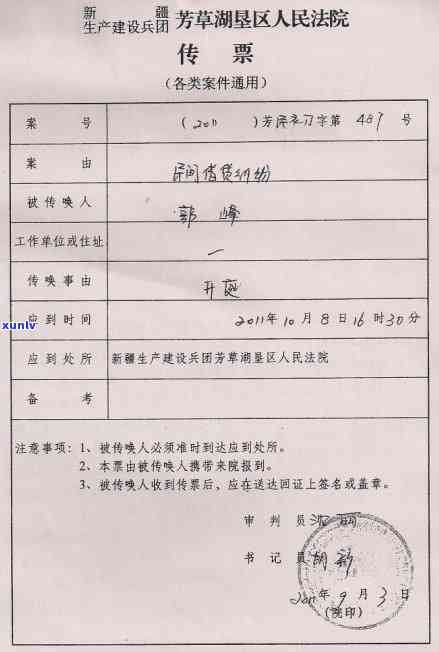 新疆
生产建设兵团 芳草湖垦区人民法院
传票
（各类案件通用）
案号 （2011）芳民初字第 487 号
案由 民间借贷纠纷
被传唤人 郭峰
工作单位或住址 一
传唤事由 开庭
应到时间 2011年10月8日16时30分
xunlv
应到处所 新疆生产建设兵团芳草湖垦区人民法院
备考
注意事项：1、被传唤人必须准时到达应到处所。
2、本票由被传唤人携带来院报到。
3、被传唤人收到传票后，应在送达回证上签名或盖章。
审判员
书记员 胡新
2011年9月3日
（院印）